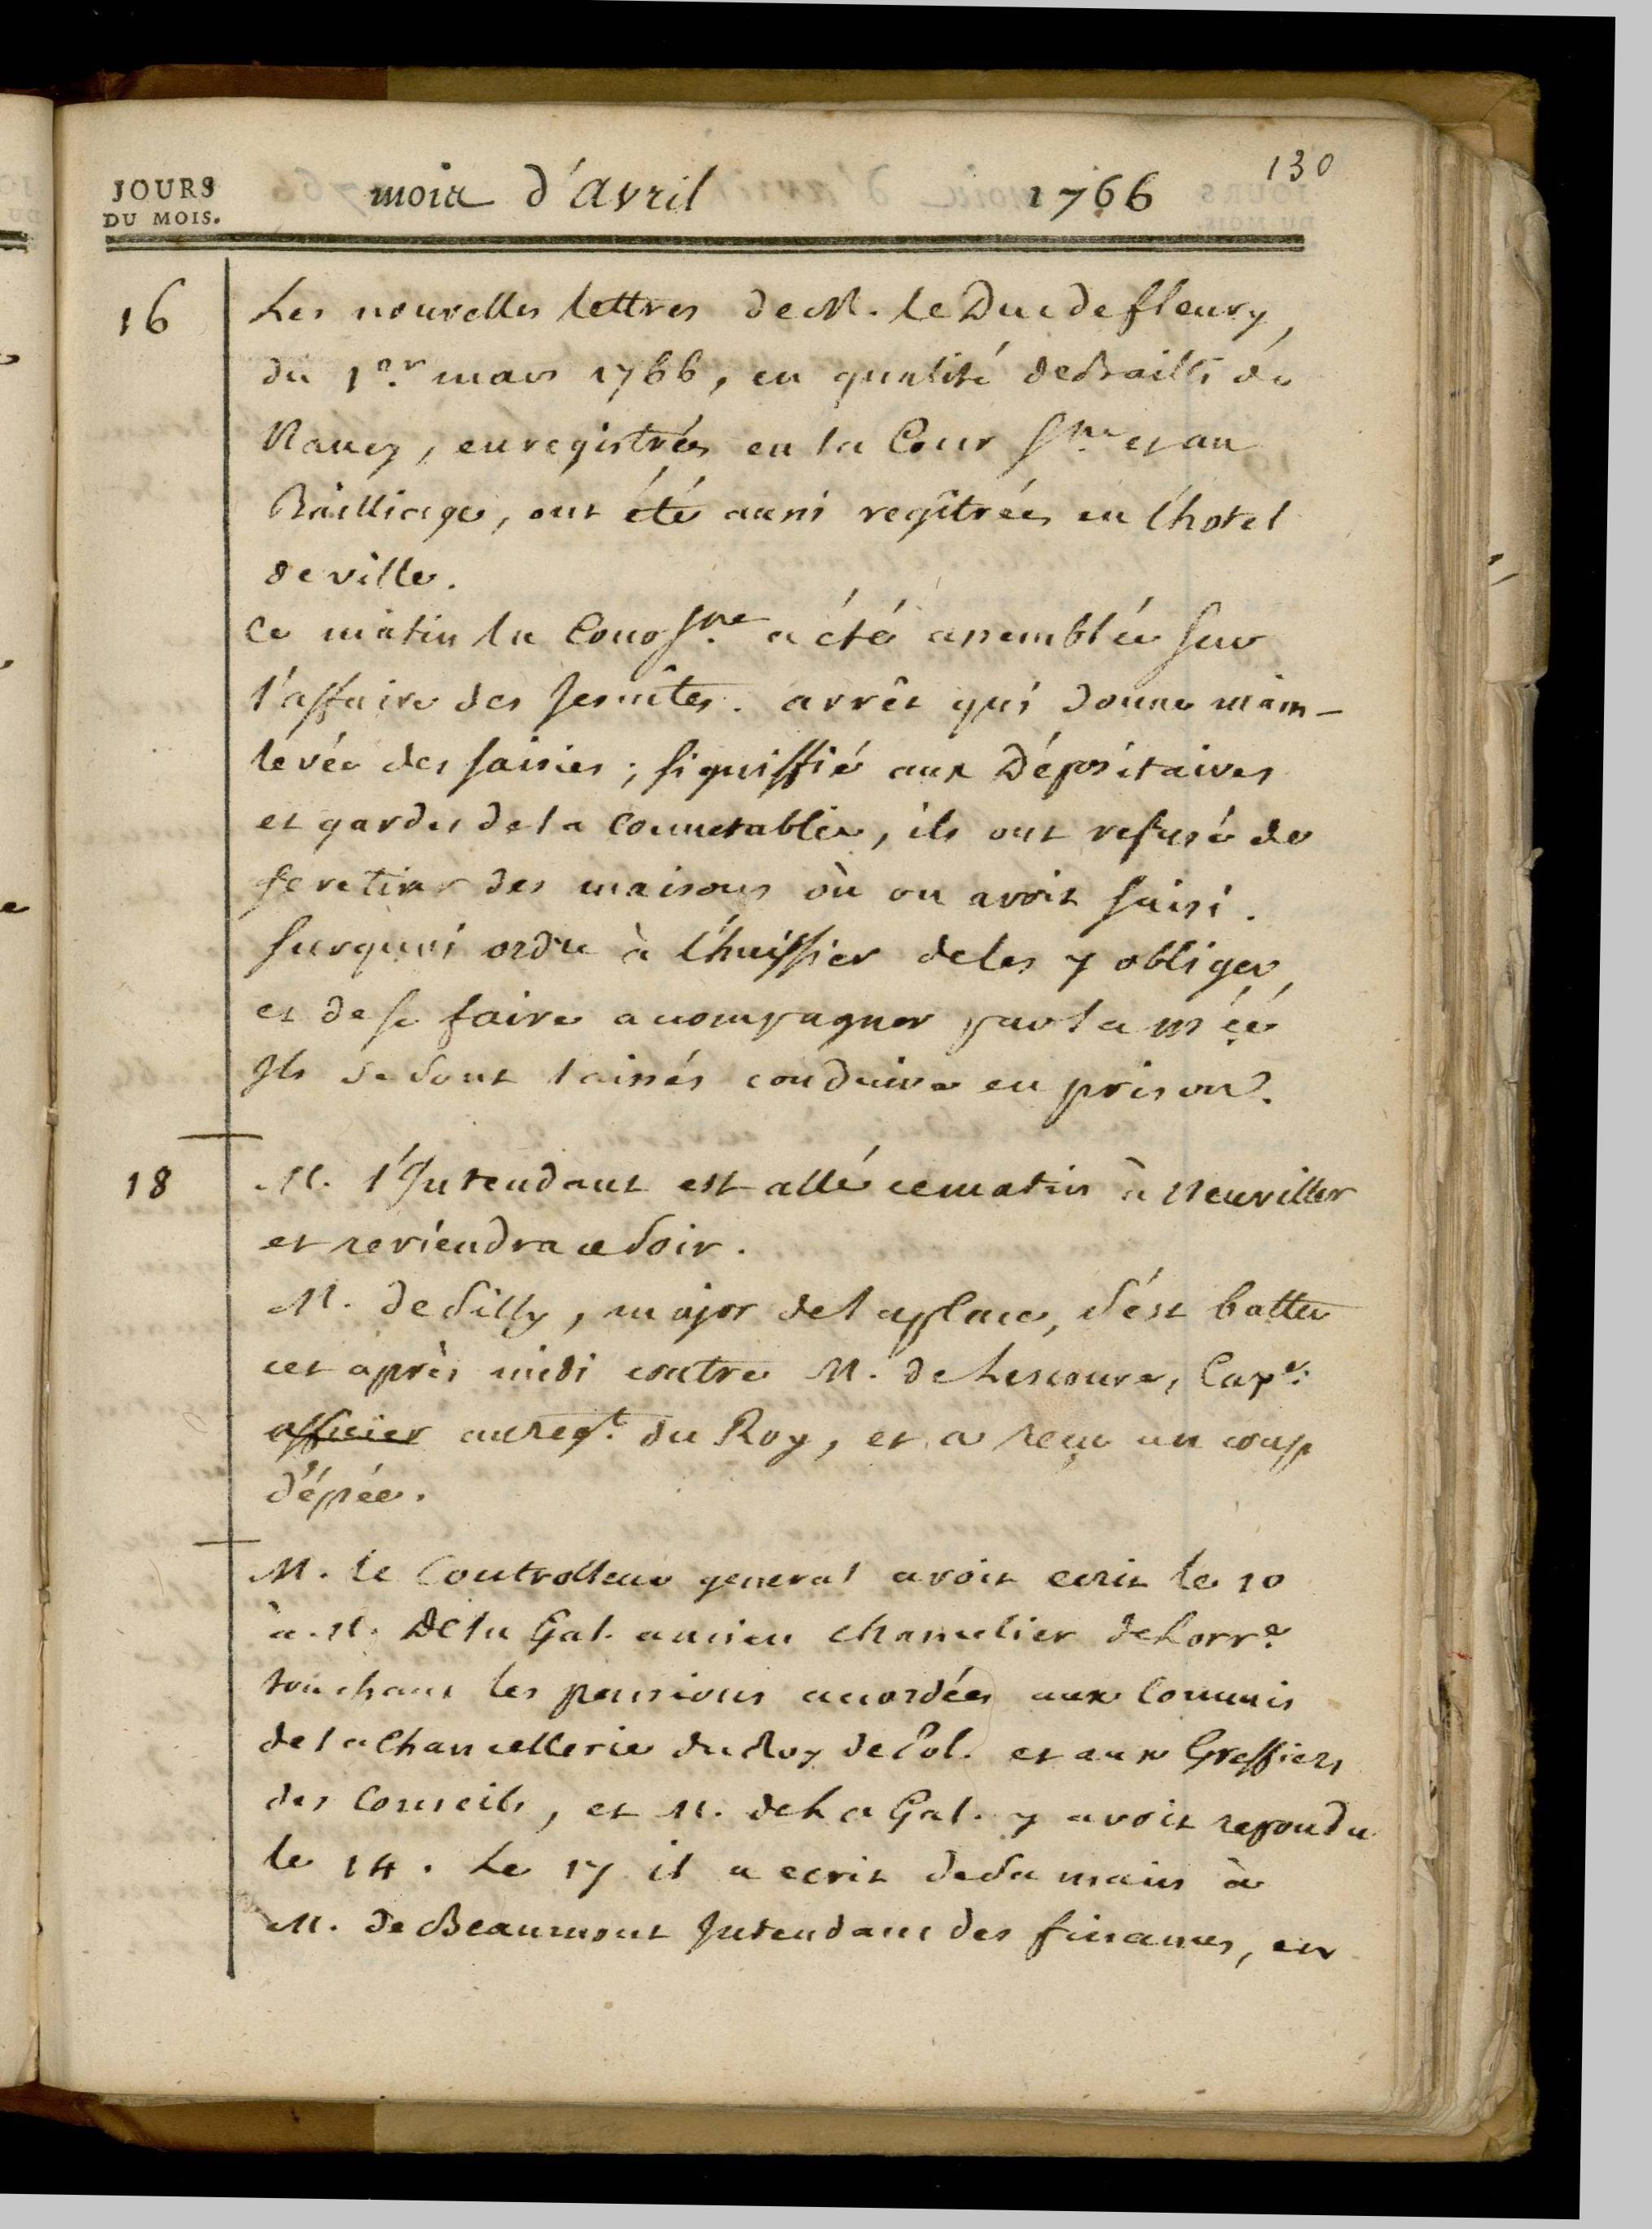 130
JOURS
DU MOIS.
mois d'Avril 1766
16
Les nouvelles lettres de M. le Duc de fleury,
du 1er. mars 1766, en qualité de Bailli de
Nancy, enregistrées en la Cour Sne. et au
Bailliage, ont été aussi regîtrées en l'hotel
de ville.
Ce matin la Cour Sne. a été assemblée sur
l'affaire des Jesuîtes. arrêt qui donne main-
levée des saisies ; signiffié aux Dépositaires
et gardes de la Connetablie, ils ont refusé de
se retirer des maisons où on avoit saisi.
surquoi ordre à l'huissier de les y obliger,
et de se faire acompagner par la mée
Ils se sont laissés conduire en prison.
18
M. l'Intendant est allé ce matin à Neuviller
et reviendra ce soir.
M. de Silly, major de la place, s'est battu
cet après midi contre M. de Lescure, Cape.
officier au regt. du Roy, et a reçu un coup
d'épée.
M. le Controlleur general avoit ecrit le 10
à M. De la Gal. ancien chancelier de Lorre.
touchant les pensions acordées aux Commis
de la Chancellerie du Roy de Pol. et aux Greffiers
des Conseils, et M. de La Gal. y avoit repondu
le 14. Le 17 il a ecrit de sa main à
M. de Beaumont Intendant des finances, en